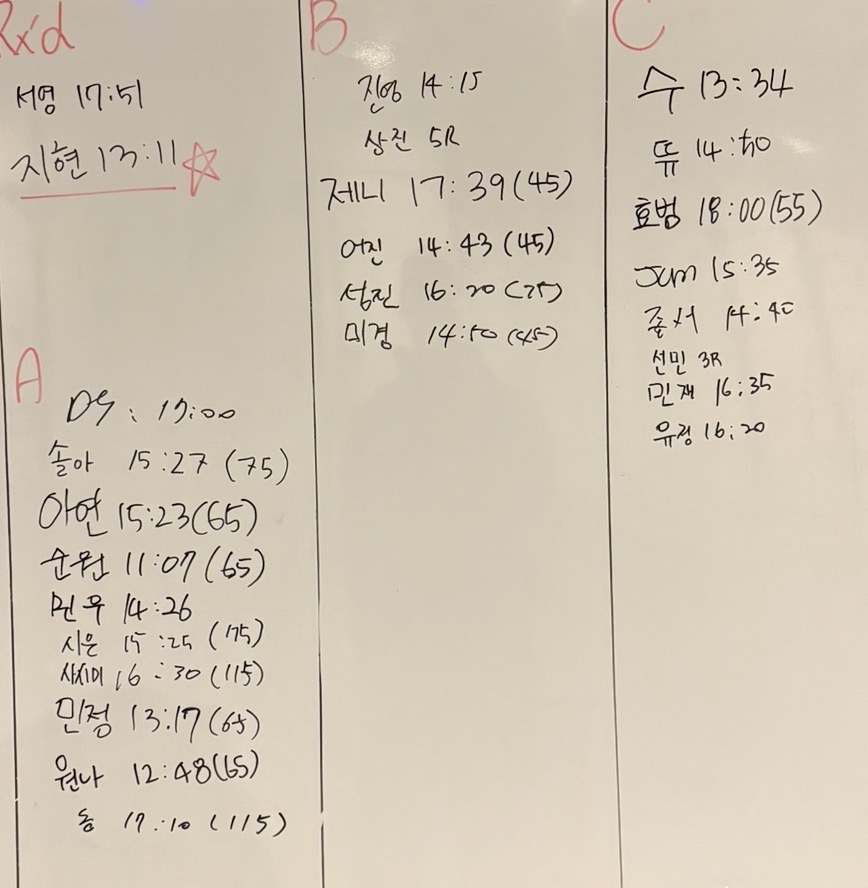 Rx'd
서영 17:51
지현 13:11
A
DS : 17:00
솔아 15:27 (75)
아연 15:23(65)
순원 11:07 (65)
민우 14:26
시은 15:25 (75)
사치미 16:30 (115)
민정 13:17 (65)
원나 12:48(65)
동 17:10 (115)
B
진영 14:15
상진 5R
제니 17:39(45)
어진 14:43 (45)
성진 16:20 (75)
미경 14:50 (45)
C
수 13:34
뜌 14:50
효범 18:00(55)
Jum 15:35
졸서 14:40
선민 3R
민재 16:35
유정 16:20